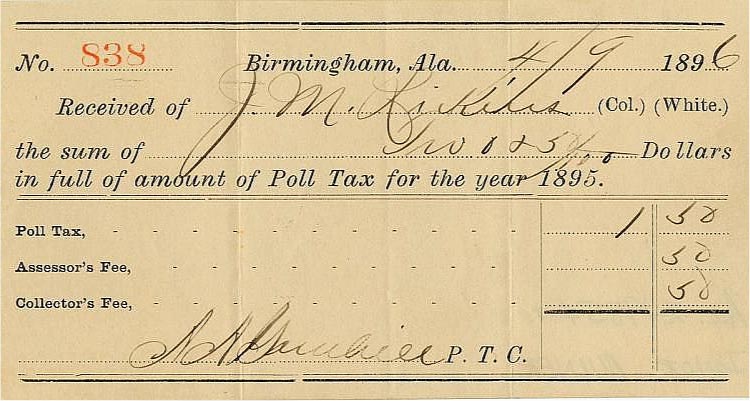 No. 838 Birmingham, Ala. 4/9 1896
Received of J. M. (Col.) (White.)
the sum of Two & 50/100 Dollars
in full of amount of Poll Tax for the year 1895.
Poll Tax, - - - - - - - - - - - - 1 50
Assessor's Fee, - - - - - - - - - - - 50
Collector's Fee, - - - - - - - - - - - 50
P. T. C.